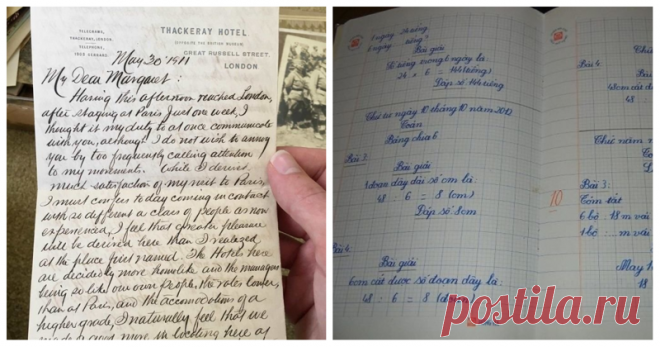 TELEGRAMS,
THACKERAY, LONDON.
TELEPHONE,
THACKERAY HOTEL
GREAT RUSSELL STREET,
LONDON
May 30 1911
My Dear Margaret:
Having this afternoon reached London,
after staying at Paris just one week, I
thought it my duty to at once communicate
with you, although I do not wish to annoy
you by too frequently calling attention
to my movements. While I derived
much satisfaction of my visit to Paris,
I must confess to day coming in contact
with so different a class of people as now
experienced, I feel that greater pleasure
will be derived here than I realized
at the place first named. The Hotels here
are decidedly more homelike and the managers
being so like our own people, the rates lower,
than at Paris, and the accomodations of a
higher grade, I naturally feel that we
more in locating here at
1 ngày 24 tiếng
6 ngày tiếng?
Bài giải
Số tiếng trong 6 ngày là:
24 x 6 = 144 (tiếng)
Đáp số 144 tiếng
Thứ tư ngày 10 tháng 10 năm 2012
Toán
Bảng chia 6
Bài 3:
Bài giải
1 đoạn dây dài số cm là:
48 : 6 = 8 (cm)
Đáp số: 8cm
Bài 4:
Bài giải
6cm cắt được số đoạn dây là:
48 : 6 = 8 (đoạn)
Bài 4
48cm cắt đ
48
Thứ năm n
10
Bài 3:
Tóm tắt
6 bộ 18 m vải
1 bộ ...m vải
May 1
18
postila.ru